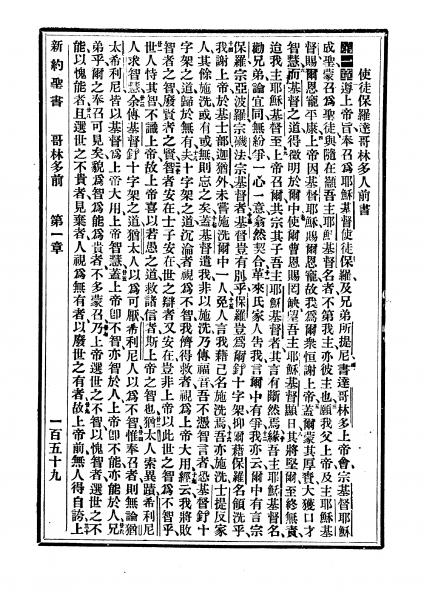 使徒保羅達哥林多人前書
第一章遵上帝旨奉召爲耶穌基督使徒保羅及兄弟所提尼書達哥林多上帝會宗基督耶穌
成聖蒙召爲聖徒與隨在籲吾主耶穌基督名者不第我主亦彼主也願我父上帝及主耶穌基
督賜爾恩寵平康上帝因基督耶穌賜爾恩寵故我爲爾衆恒謝上帝蓋爾蒙其厚賚大獲口才
智慧而基督之道得徵明於爾中使爾曹恩賜罔缺望吾主耶穌基督顯日其將堅爾至終無責
迨我主耶穌基督至上帝召爾共宗其子吾主耶穌基督者其言有斷然焉緣吾主耶穌基督名
勸兄弟論宜同無紛爭一心一意翕然契合革來氏家人告我言爾中有爭我亦云爾中有言宗
保羅宗亞波羅宗磯法宗基督者基督豈有別乎保羅豈爲爾釘十字架抑爾藉保羅名領洗乎
我謝上帝於基士部迦猶外未嘗施洗爾中一人免人言我藉己名施洗焉吾亦施洗士提反家
人其餘施洗或有或無則忘之矣蓋基督遣我非以施洗乃傳福音吾不憑智言者恐基督釘十
字架之道歸於無有夫十字架之道沉淪者視爲不智我儕得救者視爲上帝大用經云我將敗
智者之智廢賢者之賢智者安在士子安在世之辯者又安在豈非上帝以此世之智爲不智乎
世人恃其智不識上帝故上帝喜以若愚之道救諸信者斯上帝之智也猶太人索異蹟希利尼
人求智慧余傳基督釘十字架之道猶太人以爲可厭希利尼人以爲不智惟奉召者則無論猶
太希利尼皆以基督爲上帝大用上帝智慧蓋上帝即不智亦智於人上帝即不能亦能於人兄
弟乎爾之奉召可見矣貌爲智爲能爲貴者不多蒙召乃上帝選世之不智以愧智者選世之不
能以愧能者且選世之不貴者見棄者人視爲無有者以廢世之有者故上帝前無人得自誇上
新約聖書 哥林多前 第一章 一百五十九